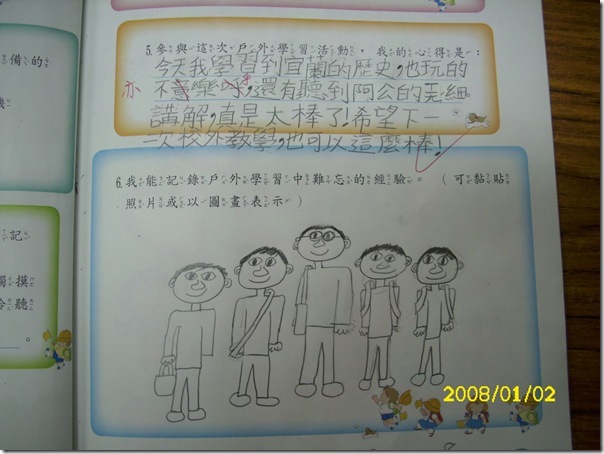 備的
記
摸
聽
5.參與這次戶外學習活動，我的心得是：
今天我學習到宜蘭的歷史,也玩的
亦
不意樂乎,還有聽到阿公的羊細
講解,真是太棒了!希望下一
一次校外教學,也可以這麼棒!
6.我能記錄戶外學習中難忘的經驗。（可黏貼
照片或以圖畫表示）
2008/01/02